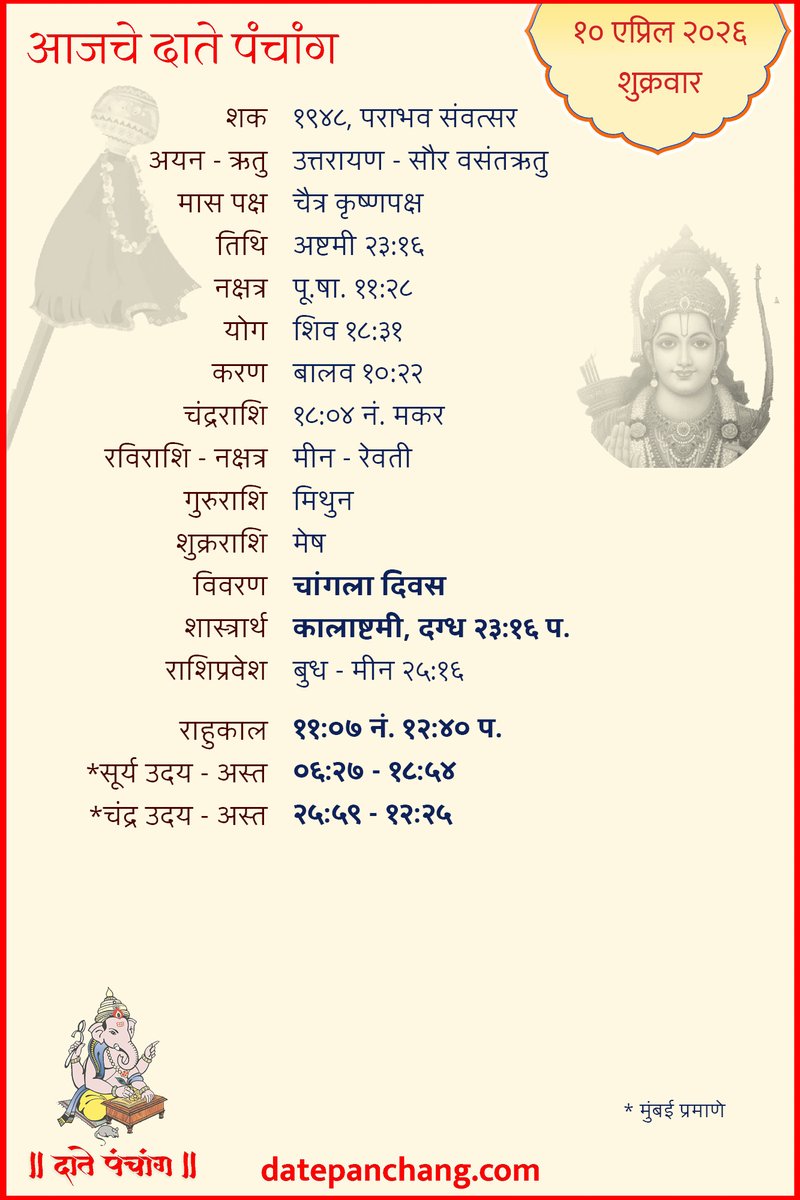 आजचे दाते पंचांग
१० एप्रिल २०२६
शुक्रवार
शक १९४८, पराभव संवत्सर
अयन - ऋतु उत्तरायण - सौर वसंतऋतु
मास पक्ष चैत्र कृष्णपक्ष
तिथि अष्टमी २३:१६
नक्षत्र पू.षा. ११:२८
योग शिव १८:३१
करण बालव १०:२२
चंद्रराशि १८:०४ नं. मकर
रविराशि - नक्षत्र मीन - रेवती
गुरुराशि मिथुन
शुक्रराशि मेष
विवरण चांगला दिवस
शास्त्रार्थ कालाष्टमी, दग्ध २३:१६ प.
राशिप्रवेश बुध - मीन २५:१६
राहुकाल ११:०७ नं. १२:४० प.
*सूर्य उदय - अस्त ०६:२७ - १८:५४
*चंद्र उदय - अस्त २५:५९ - १२:२५
* मुंबई प्रमाणे
॥ दाते पंचांग ॥
datepanchang.com